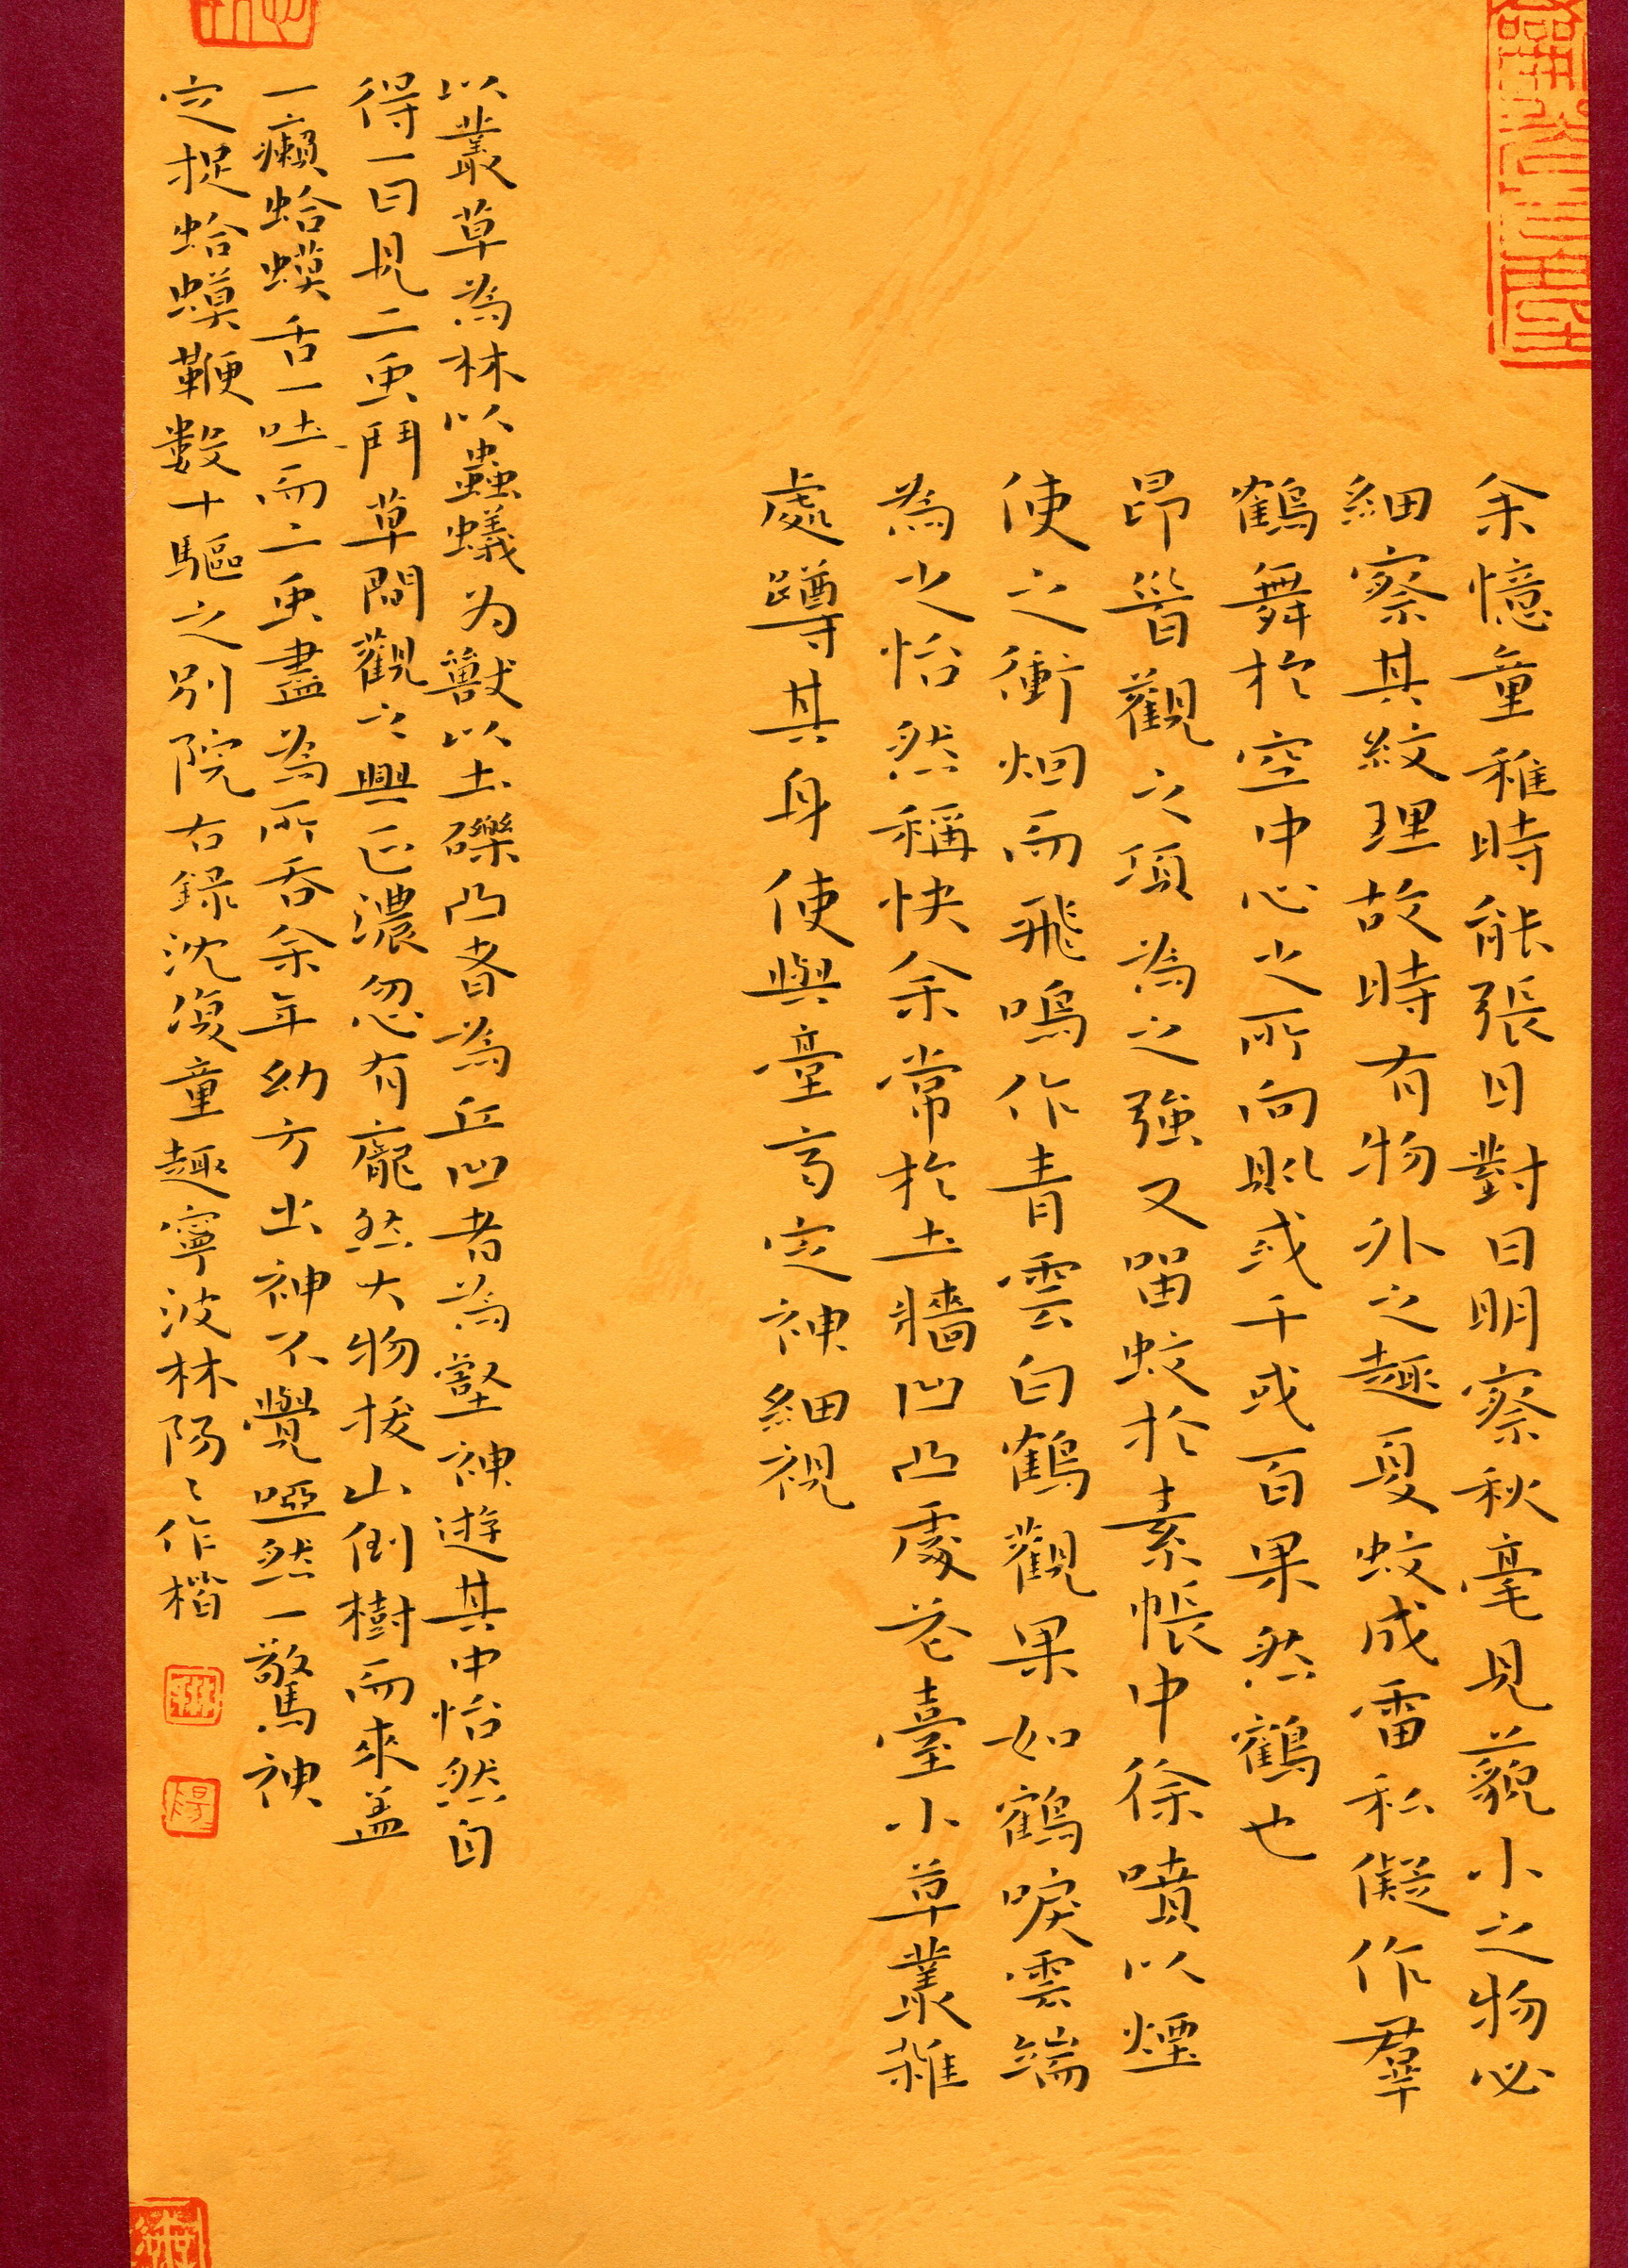 余憶童稚時能張目對日明察秋毫見藐小之物必
細察其紋理故時有物外之趣夏蚊成雷私儗作羣
鶴舞於空中心之所向則或千或百果然鶴也
昂首觀之項為之強又留蚊於素帳中徐噴以煙
使之衝烟而飛鳴作青雲白鶴觀果如鶴唳雲端
為之怡然稱快余常於土牆凹凸處花臺小草叢雜
處蹲其身使與臺高定神細視
以叢草為林以蟲蟻为獸以土礫凸者為丘凹者為壑神遊其中怡然自
得一日見二虫鬥草間觀之興正濃忽有龐然大物拔山倒樹而來蓋
一癩蛤蟆舌一吐而二虫盡為所吞余年幼方出神不覺啞然一驚神
定捉蛤蟆鞭數十驅之別院右録沈復童趣寧波林陽陽作楷